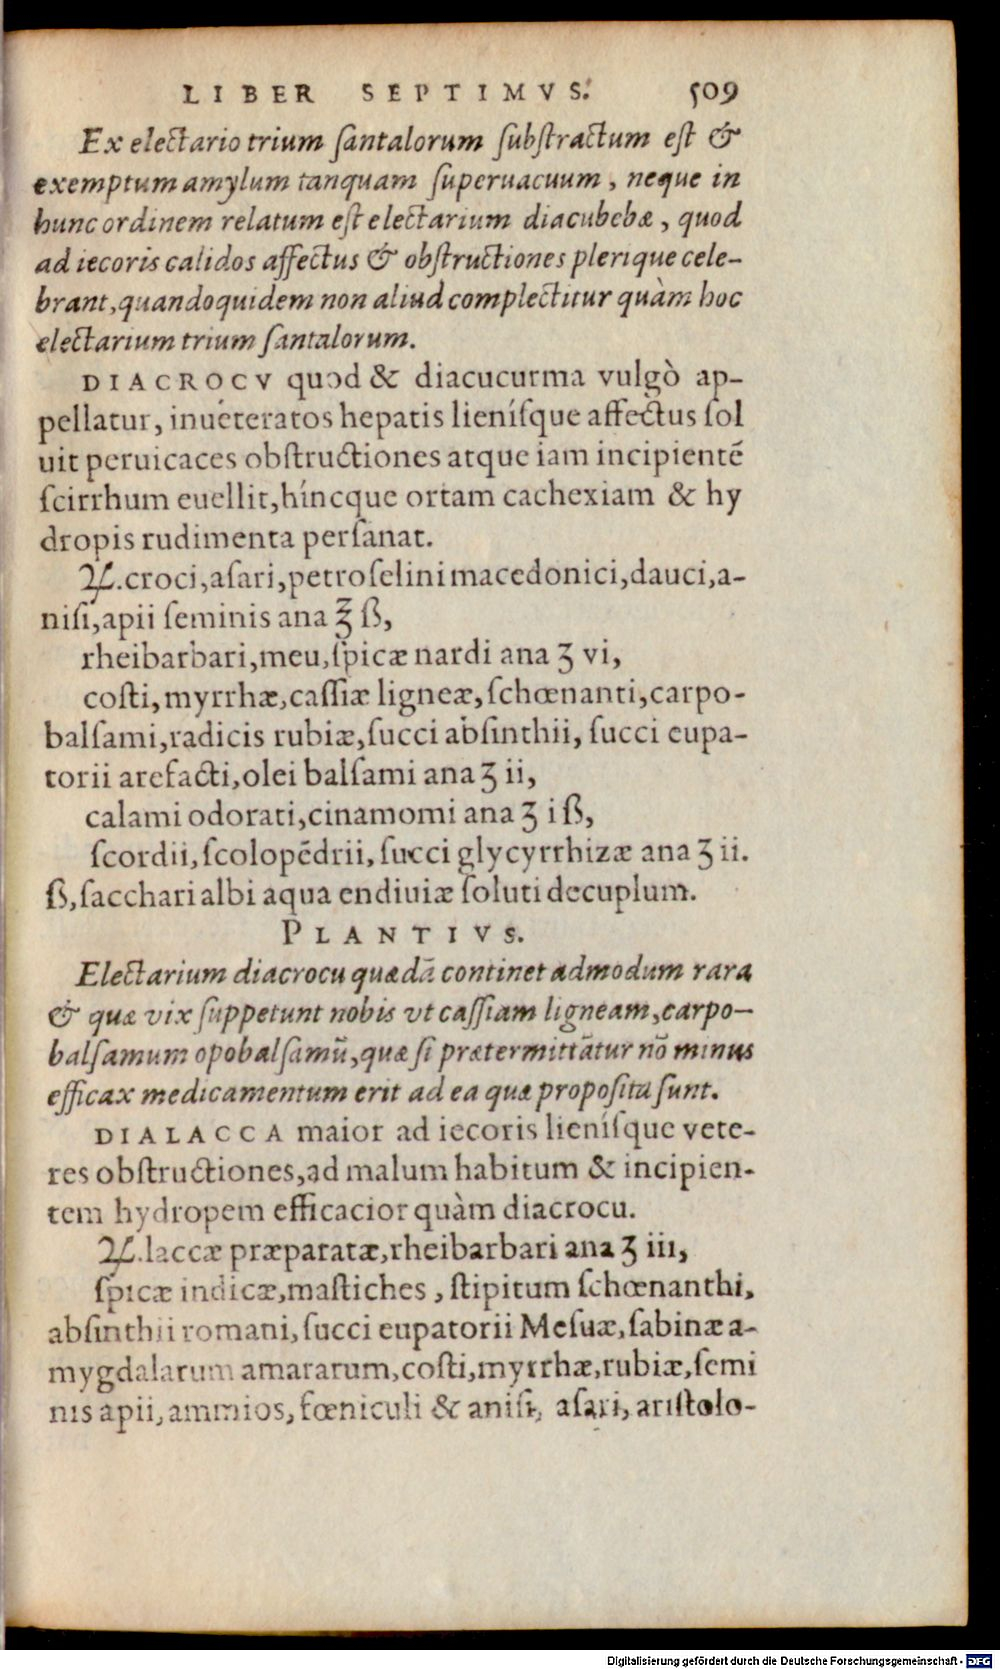 LIBER SEPTIMVS. 509
Ex electario trium ſantalorum ſubſtractum est &
exemptum amylum tanquam ſuperuacuum, neque in
hunc ordinem relatum eſt electarium diacubebæ, quod
ad iecoris calidos affectus & obſtructiones plerique cele-
brant, quandoquidem non aliud complectitur quàm hoc
electarium trium ſantalorum.
DIACROCV quod & diacucurma vulgò ap-
pellatur, inueteratos hepatis lieníſque affectus ſol
uit peruicaces obſtructiones atque iam incipientē
ſcirrhum euellit, híncque ortam cachexiam & hy
dropis rudimenta perſanat.
℞. croci, aſari, petroſelini macedonici, dauci, a-
niſi, apii ſeminis ana ℥ ß,
rheibarbari, meu, ſpicæ nardi ana ʒ vi,
coſti, myrrhæ, caſſiæ ligneæ, ſchœnanti, carpo-
balſami, radicis rubiæ, ſucci abſinthii, ſucci eupa-
torii arefacti, olei balſami ana ʒ ii,
calami odorati, cinamomi ana ʒ i ß,
ſcordii, ſcolopēdrii, ſucci glycyrrhizæ ana ʒ ii.
ß, ſacchari albi aqua endiuiæ ſoluti decuplum.
PLANTIVS.
Electarium diacrocu quædā continet admodum rara
& quæ vix ſuppetunt nobis vt caſſiam ligneam, carpo-
balſamum opobalſamū, quæ ſi prætermittātur nō minus
efficax medicamentum erit ad ea quæ propoſita ſunt.
DIALACCA maior ad iecoris lieníſque vete-
res obſtructiones, ad malum habitum & incipien-
tem hydropem efficacior quàm diacrocu.
℞. laccæ præparatæ, rheibarbari ana ʒ iii,
ſpicæ indicæ, maſtiches, ſtipitum ſchœnanthi,
abſinthii romani, ſucci eupatorii Meſuæ, ſabinæ a-
mygdalarum amararum, coſti, myrrhæ, rubiæ, ſemi
nis apii, ammios, fœniculi & aniſi, aſari, ariſtolo-
Digitalisierung gefördert durch die Deutsche Forschungsgemeinschaft - DFG